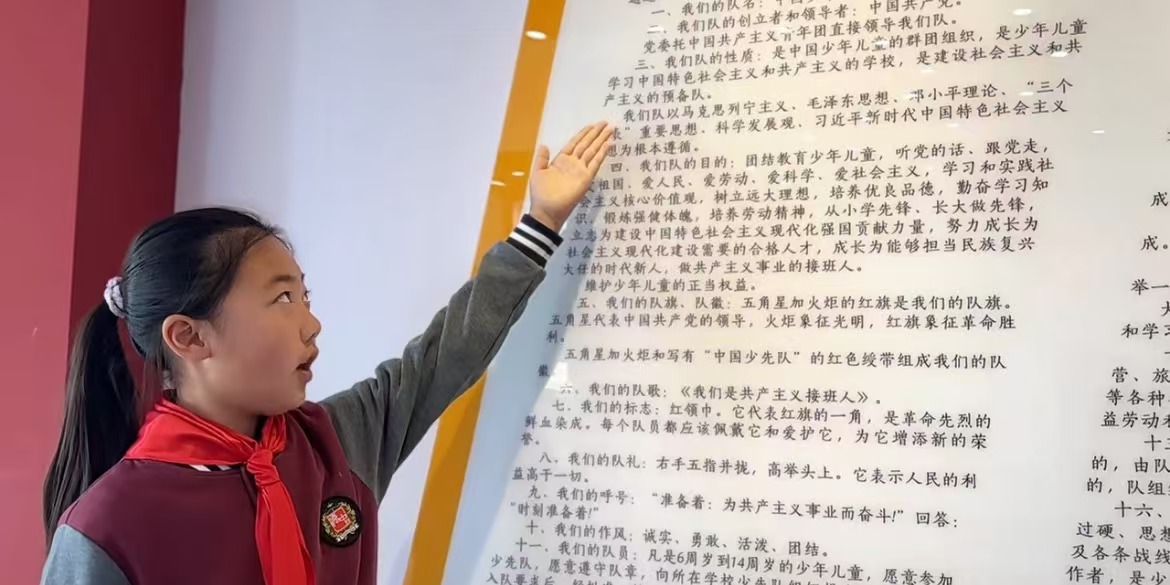 一、我们的队名：中国少
二、我们的创立者和领导者：中国共产党。
党委托中国共产主义青年团直接领导我们队。
三、我们队的性质：是中国少年儿童的群团组织，是少年儿童
学习中国特色社会主义和共产主义的学校，是建设社会主义和共
产主义的预备队。
我们队以马克思列宁主义、毛泽东思想、邓小平理论、“三个
表”重要思想、科学发展观、习近平新时代中国特色社会主义
想为根本遵循。
四、我们队的目的：团结教育少年儿童，听党的话、跟党走，
祖国、爱人民、爱劳动、爱科学、爱社会主义，学习和实践社
会主义核心价值观，树立远大理想，培养优良品德，勤奋学习知
识，锻炼强健体魄，培养劳动精神，从小学先锋、长大做先锋，
立志为建设中国特色社会主义现代化强国贡献力量，努力成长为
社会主义现代化建设需要的合格人才，成长为能够担当民族复兴
大任的时代新人，做共产主义事业的接班人。
维护少年儿童的正当权益。
五、我们的队旗、队徽：五角星加火炬的红旗是我们的队旗。
五角星代表中国共产党的领导，火炬象征光明，红旗象征革命胜
利。
五角星加火炬和写有“中国少先队”的红色绶带组成我们的队
徽。
六、我们的队歌：《我们是共产主义接班人》。
七、我们的标志：红领巾。它代表红旗的一角，是革命先烈的
鲜血染成。每个队员都应该佩戴它和爱护它，为它增添新的荣
誉。
八、我们的队礼：右手五指并拢，高举头上。它表示人民的利
益高于一切。
九、我们的呼号：“准备着：为共产主义事业而奋斗!”回答：
“时刻准备着!”
十、我们的作风：诚实、勇敢、活泼、团结。
十一、我们的队员：凡是6周岁到14周岁的少年儿童，愿意参加
少先队，愿意遵守队章，向所在学校少先队组织
入队要求后
成
成
举一
大
和学习
营、旅
等各种
益劳动和
十
的，由队
的，队组
十六、
过硬、思想
及各条战线
作者，是小